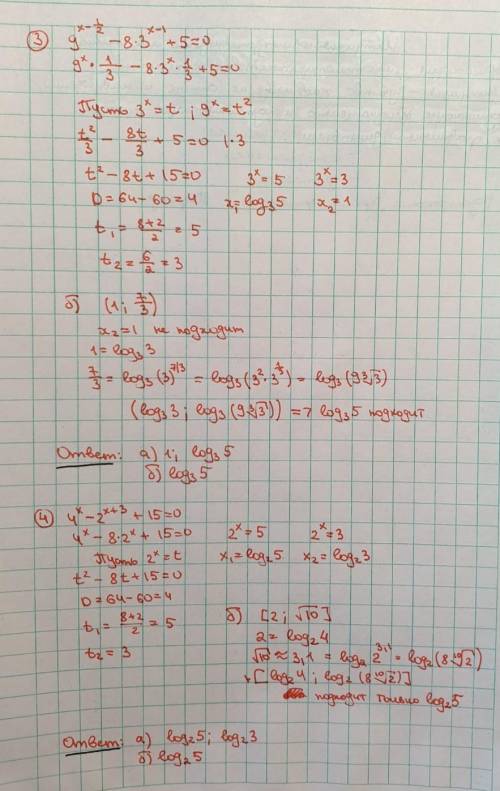 ③ 9^{x-\frac{1}{2}} - 8·3^{x-1} + 5=0
9^x · \frac{1}{3} - 8·3^x · \frac{1}{3} + 5=0
Пусть 3^x = t ; 9^x = t^2
\frac{t^2}{3} - \frac{8t}{3} + 5 = 0 |·3
t^2 - 8t + 15 = 0 3^x = 5 3^x = 3
D = 64 - 60 = 4 x_1 = log_3 5 x_2 = 1
t_1 = \frac{8+2}{2} = 5
t_2 = \frac{6}{2} = 3
б) (1; \frac{7}{3})
x_2 = 1 не подходит
1 = log_3 3
\frac{7}{3} = log_3 (3)^{7/3} = log_3 (3^2 · 3^{\frac{1}{3}}) = log_3 (9\sqrt[3]{3})
(log_3 3 ; log_3 (9\sqrt[3]{3})) => log_3 5 подходит
Ответ: а) 1; log_3 5
б) log_3 5
④ 4^x - 2^{x+3} + 15 = 0
4^x - 8·2^x + 15 = 0 2^x = 5 2^x = 3
Пусть 2^x = t x_1 = log_2 5 x_2 = log_2 3
t^2 - 8t + 15 = 0
D = 64 - 60 = 4
t_1 = \frac{8+2}{2} = 5
t_2 = 3
б) [2; \sqrt{10}]
2 = log_2 4
\sqrt{10} ≈ 3,1 = log_2 2^{3,1} = log_2 (8\sqrt[10]{2})
[log_2 4 ; log_2 (8\sqrt[10]{2})]
подходит только log_2 5
Ответ: а) log_2 5; log_2 3
б) log_2 5